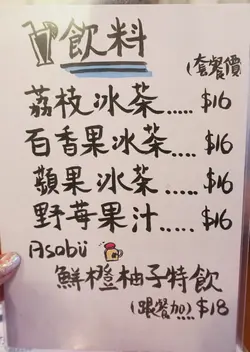 飲料
(套餐價
荔枝冰茶.....$16
百香果冰茶....$16
蘋果冰茶.....$16
野莓果汁....$16
Asabü
鮮橙柚子特飲
(跟餐加)$18